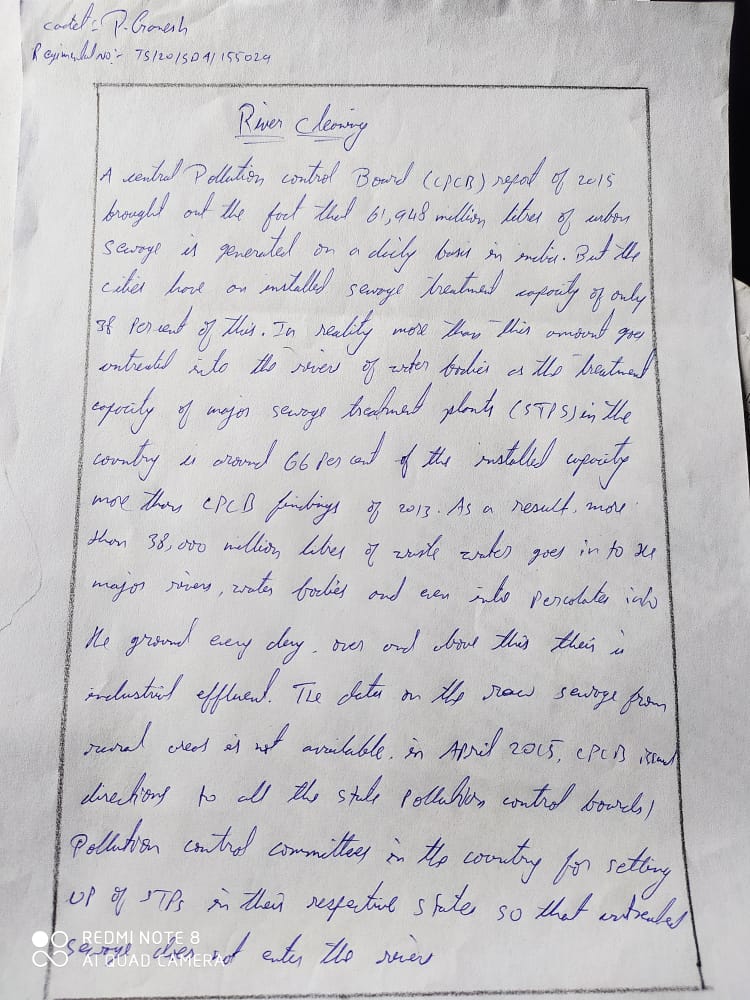 cadet:- P. Ganesh
Regimental no:- TS/20/SDA/155029
River Cleaning
A central Pollution control Board (CPCB) report of 2015
brought out the fact that 61,948 million litres of urban
sewage is generated on a daily basis in india. But the
cities have an installed sewage treatment capacity of only
38 Per cent of this. In reality more than this amount goes
untreated into the rivers of water bodies as the treatment
capacity of major sewage treatment plants (STPS) in the
country is around 66 Per cent of the installed capacity
more than CPCB findings of 2013. As a result, more
than 38,000 million litres of waste water goes in to the
major rivers, water bodies and even into Percolates into
the ground every day. over and above this their is
industrial effluent. The data on the raw sewage from
rural areas is not available. in April 2015, CPCB issued
directions to all the state Pollution control boards/
Pollution control committees in the country for setting
UP of STPs in their respective states so that untreated
sewage does not enter the rivers
REDMI NOTE 8
AI QUAD CAMERA